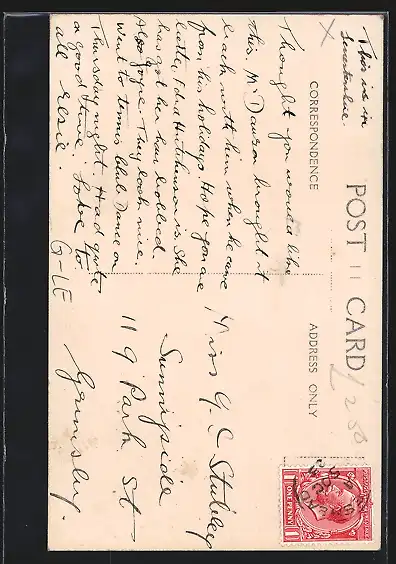 This is in
Switzerland.
X
POST CARD
CORRESPONDENCE
ADDRESS ONLY
Thought you would like
this. Mr Dawson brought it
back with him when he came
from his holidays. Hope you are
better. Ida Hutchinson is. She
has got her hair bobbed
Also Joyce. They look nice.
Went to tennis Club Dance on
Thursday night. Had quite
a good time. Love to
all Elsie.
Miss G. C. Stubley
Sunnyside
119 Park St
Grimsby.
G-LE
£2.50
ONE PENNY